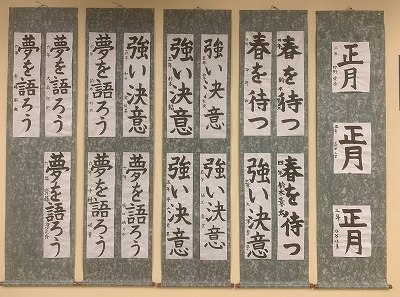 正月
正月
正月
春を待つ
春を待つ
春を待つ
強い決意
強い決意
強い決意
強い決意
強い決意
強い決意
夢を語ろう
夢を語ろう
夢を語ろう
夢を語ろう
夢を語ろう
夢を語ろう